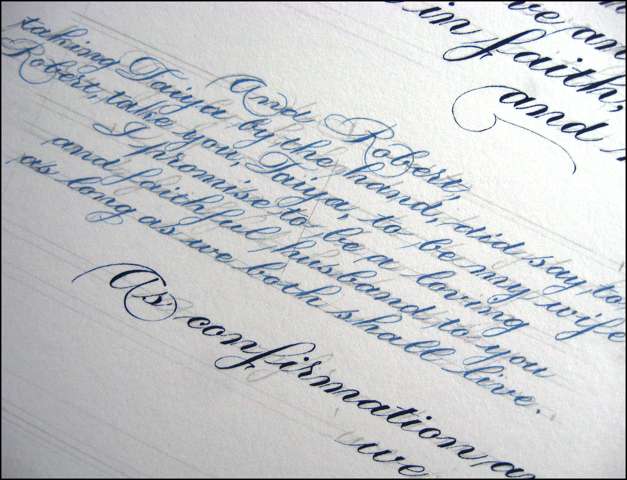 in faith,
and
And Robert,
taking Taiya by the hand, did say to
Robert, take you, Taiya, to be my wife
I promise to be a loving
and faithful husband to you
as long as we both shall live.
As confirmation
we